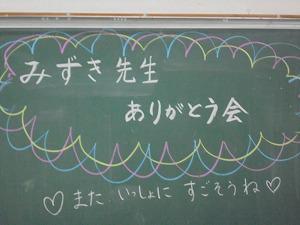 みずき先生
ありがとう会
♡また いっしょに すごそうね♡